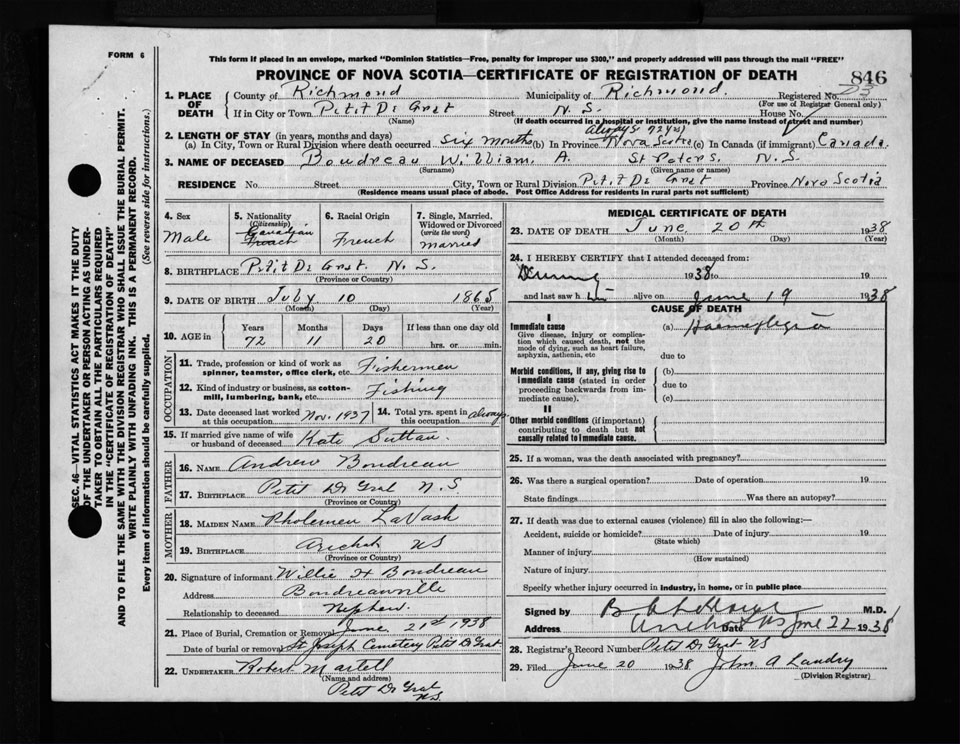 FORM 6
This form if placed in an envelope, marked "Dominion Statistics—Free, penalty for improper use $300," and properly addressed will pass through the mail "FREE"
PROVINCE OF NOVA SCOTIA—CERTIFICATE OF REGISTRATION OF DEATH
846
1. PLACE OF DEATH
County of Richmond Municipality of Richmond. Registered No.
(For use of Registrar General only)
If in City or Town Petit De Grat Street N. S. House No.
(Name) (If death occurred in a hospital or institution, give the name instead of street and number)
2. LENGTH OF STAY (in years, months and days)
(a) In City, Town or Rural Division where death occurred six months (b) In Province Nova Scotia (c) In Canada (if immigrant) Canada.
3. NAME OF DECEASED Boudreau William. A. St Peters. N. S.
(Surname) (Given name or names)
RESIDENCE No. Street City, Town or Rural Division Petit De Grat Province Nova Scotia
(Residence means usual place of abode. Post Office Address for residents in rural parts not sufficient)
4. Sex
Male
5. Nationality (Citizenship)
Canadian
French
6. Racial Origin
French
7. Single, Married, Widowed or Divorced (write the word)
married
8. BIRTHPLACE Petit De Grat N. S.
9. DATE OF BIRTH July 10 1865
(Month) (Day) (Year)
10. AGE in Years Months Days If less than one day old
72 11 20 hrs. or min.
OCCUPATION
11. Trade, profession or kind of work as spinner, teamster, office clerk, etc. Fishermen
12. Kind of industry or business, as cotton-mill, lumbering, bank, etc. Fishing
13. Date deceased last worked at this occupation Nov. 1937
14. Total yrs. spent in this occupation always
15. If married give name of wife or husband of deceased Kate Sutton.
FATHER
16. NAME Andrew Boudreau
17. BIRTHPLACE Petit De Grat N. S
(Province or Country)
MOTHER
18. MAIDEN NAME Pholemen LaVash
19. BIRTHPLACE Arichat NS
(Province or Country)
20. Signature of informant Willie H Boudreau
Address Boudreauville
Relationship to deceased Nephew.
21. Place of Burial, Cremation or Removal June 21st 1938
Date of burial or removal St Joseph Cemetery Petit De Grat
22. UNDERTAKER Robert Martell
(Name and address)
Petit De Grat
N.S.
MEDICAL CERTIFICATE OF DEATH
23. DATE OF DEATH June 20th 1938
(Month) (Day) (Year)
24. I HEREBY CERTIFY that I attended deceased from:
During 1938 to 19
and last saw him alive on June 19 1938
CAUSE OF DEATH
I
Immediate cause (a) Haemiplegia
Give disease, injury or complication which caused death, not the mode of dying, such as heart failure, asphyxia, asthenia, etc
due to
Morbid conditions, if any, giving rise to immediate cause (stated in order proceeding backwards from immediate cause).
(b)
due to
(c)
II
Other morbid conditions (if important) contributing to death but not causally related to immediate cause.
25. If a woman, was the death associated with pregnancy?
26. Was there a surgical operation? Date of operation 19
State findings Was there an autopsy?
27. If death was due to external causes (violence) fill in also the following:—
Accident, suicide or homicide? Date of injury 19
(State which)
Manner of injury
(How sustained)
Nature of injury
Specify whether injury occurred in industry, in home, or in public place
Signed by M.D.
Address Arichat NS Date June 22 1938
28. Registrar's Record Number Petit De Grat NS
29. Filed June 20 1938 John A Landry
(Division Registrar)
SEC. 46—VITAL STATISTICS ACT MAKES IT THE DUTY
OF THE UNDERTAKER OR PERSON ACTING AS UNDERTAKER TO OBTAIN ALL THE PARTICULARS REQUIRED
IN THE "CERTIFICATE OF REGISTRATION OF DEATH"
AND TO FILE THE SAME WITH THE DIVISION REGISTRAR WHO SHALL ISSUE THE BURIAL PERMIT.
WRITE PLAINLY WITH UNFADING INK. THIS IS A PERMANENT RECORD.
Every item of information should be carefully supplied. (See reverse side for instructions.)